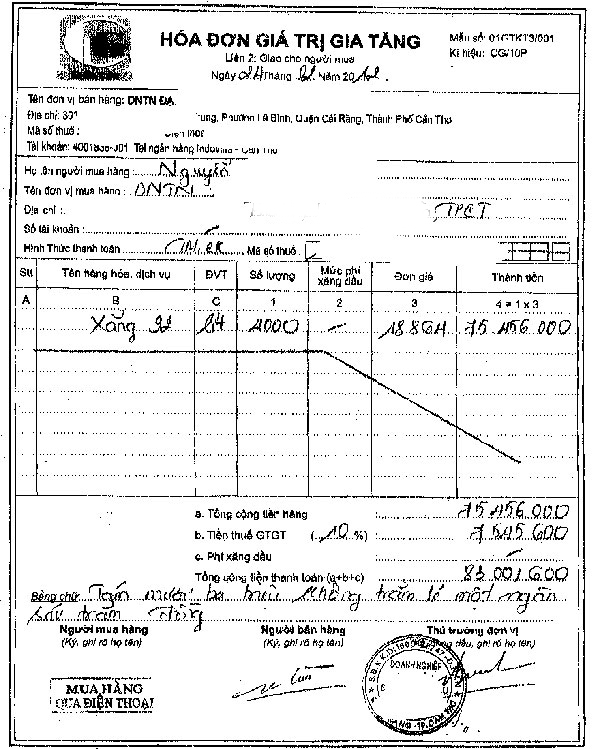 HÓA ĐƠN GIÁ TRỊ GIA TĂNG
Mẫu số: 01GTKT3/001
Liên 2: Giao cho người mua
Kí hiệu: CG/10P
Ngày 24 Tháng Năm 20
Tên đơn vị bán hàng: DNTN
Địa chỉ: Phường Lê Bình, Quận Cái Răng, Thành Phố Cần Thơ
Mã số thuế :
Tài khoản: Tại ngân hàng Indovina - Cần Thơ
Họ tên người mua hàng : Nguyễn
Tên đơn vị mua hàng : DNTN
Địa chỉ : TPCT
Số tài khoản :
Hình Thức thanh toán TM, CK Mã số thuế
Stt Tên hàng hóa, dịch vụ ĐVT Số lượng Mức phí xăng dầu Đơn giá Thành tiền
A B C 1 2 3 4 = 1 x 3
Xăng 92 4000 18 864 75 456 000
a. Tổng cộng tiền hàng 75 456 000
b. Tiền thuế GTGT (10 %) 7 545 600
c. Phí xăng dầu
Tổng cộng tiền thanh toán (a+b+c) 83 001 600
Bằng chữ Tám mươi ba triệu không trăm lẻ một ngàn
sáu trăm đồng
Người mua hàng Người bán hàng Thủ trưởng đơn vị
(Ký, ghi rõ họ tên) (Ký, ghi rõ họ tên) dấu, ghi rõ họ tên)
DOANH NGHIỆP
MUA HÀNG
QUA ĐIỆN THOẠI